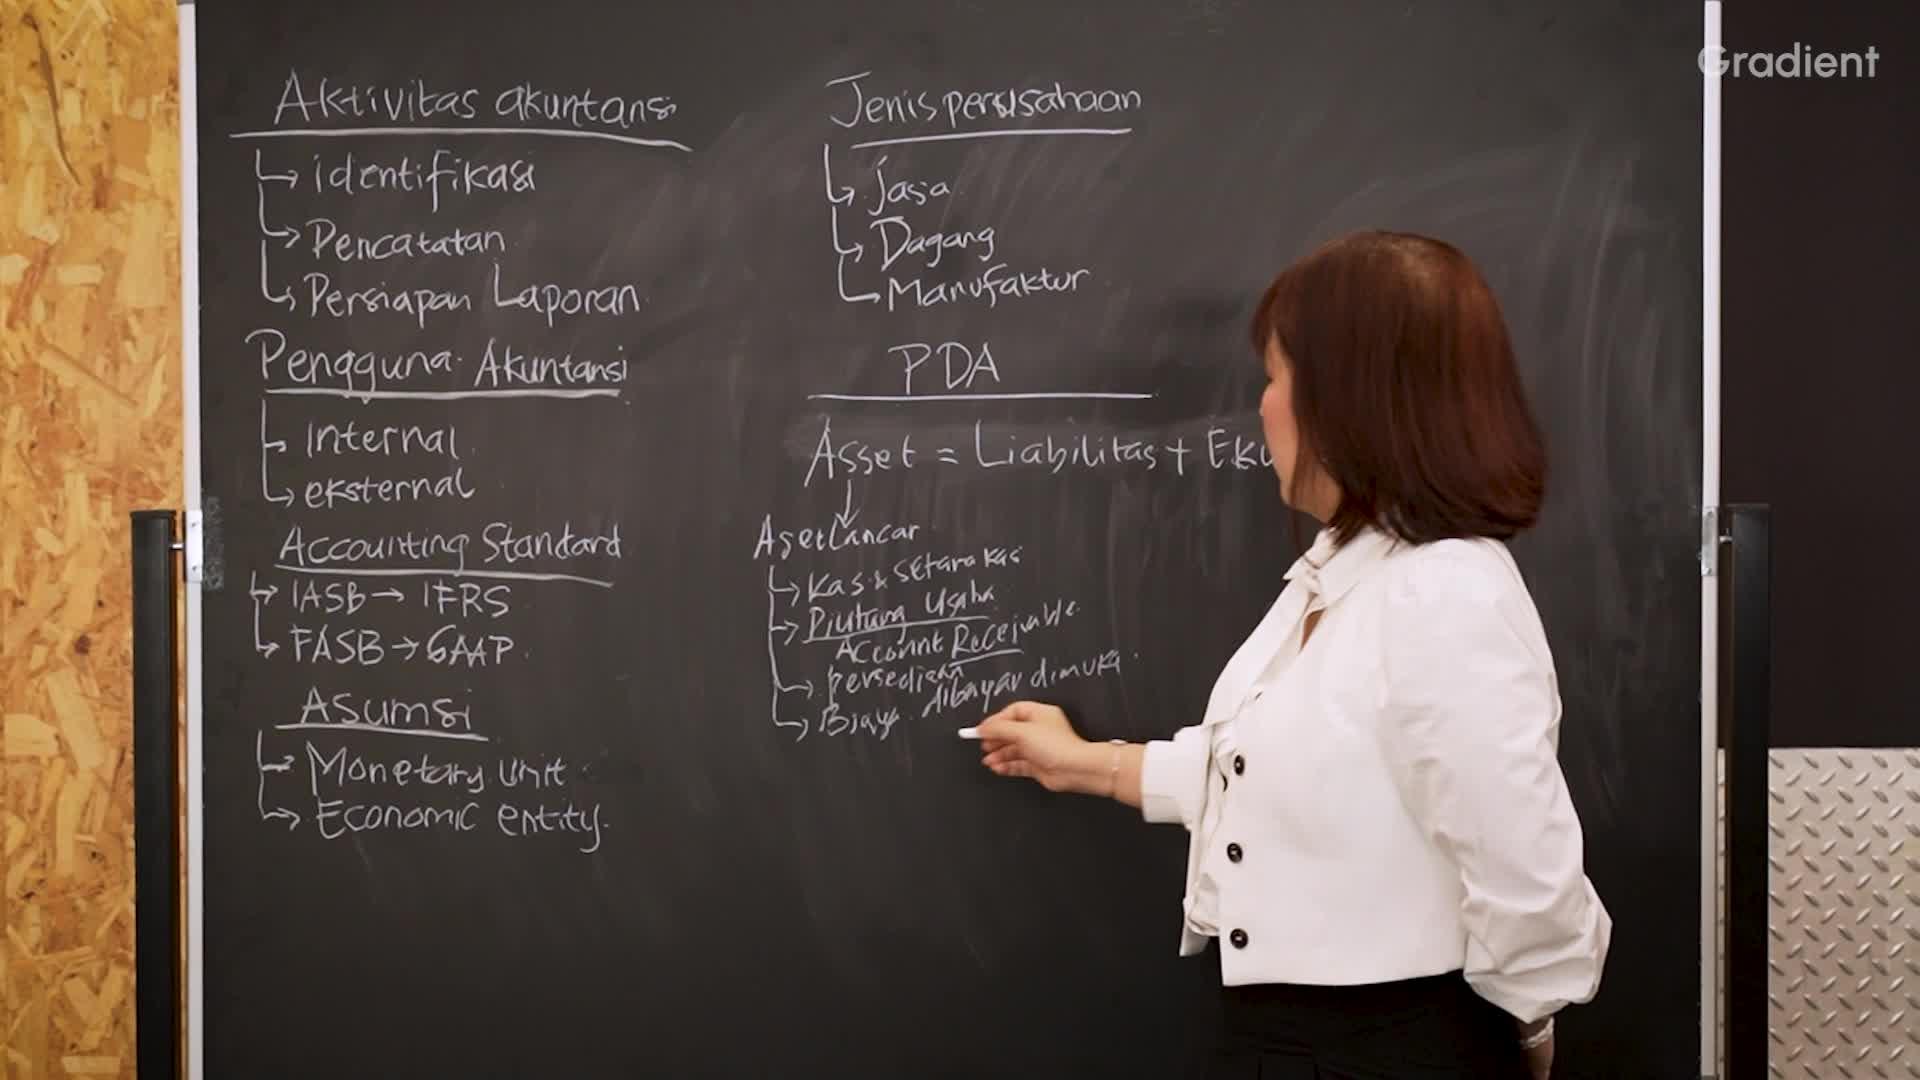 Gradient
Aktivitas akuntansi
identifikasi
Pencatatan
Persiapan Laporan
Pengguna Akuntansi
Internal
eksternal
Accounting Standard
IASB → IFRS
FASB → GAAP
Asumsi
Monetary Unit
Economic entity
Jenis perusahaan
jasa
Dagang
Manufaktur
PDA
Asset = Liabilitas + Eku
Aset Lancar
Kas & setara kas
Piutang Usaha
Account Receivable
Persediaan
Biaya dibayar dimuka